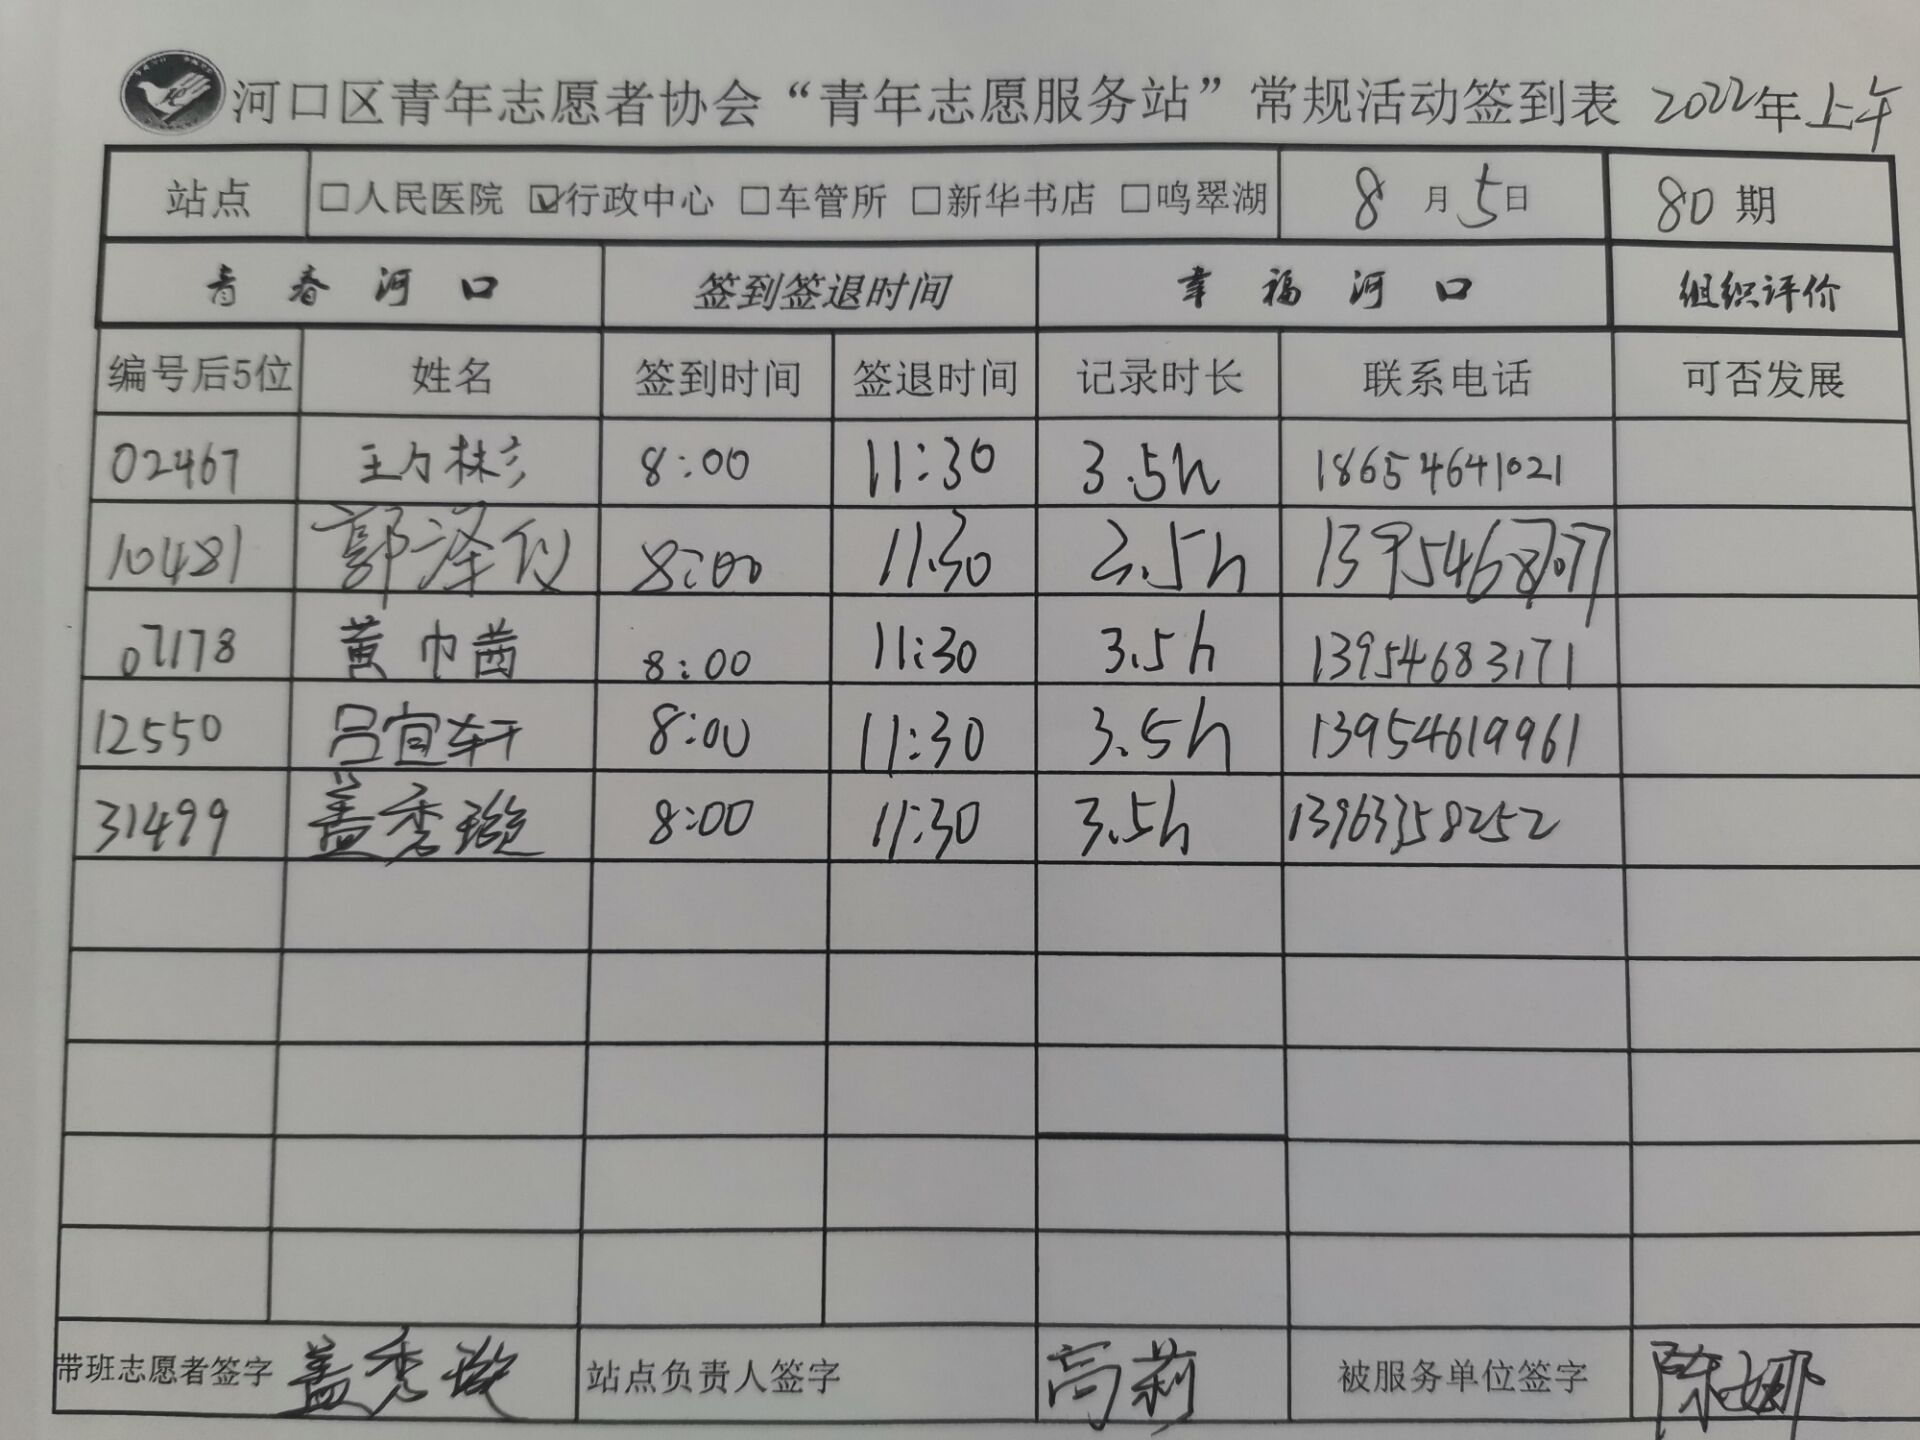 河口区青年志愿者协会“青年志愿服务站”常规活动签到表 2022年上午
站点 □人民医院 ☑行政中心 □车管所 □新华书店 □鸣翠湖 8月5日 80期
青春河口 签到签退时间 幸福河口 组织评价
编号后5位 姓名 签到时间 签退时间 记录时长 联系电话 可否发展
02467 8:00 11:30 3.5h 18654641021
10481 郭泽仪 8:00 11:30 3.5h
07178 黄巾茜 8:00 11:30 3.5h 13954683171
12550 吕宜轩 8:00 11:30 3.5h 13954619961
31499 盖秀璇 8:00 11:30 3.5h 13963358252
带班志愿者签字 盖秀璇 站点负责人签字 高莉 被服务单位签字 陈娜